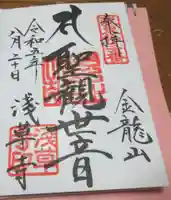 奉拝
金龍山
聖観世音
浅草寺
令和五年
八月二十日